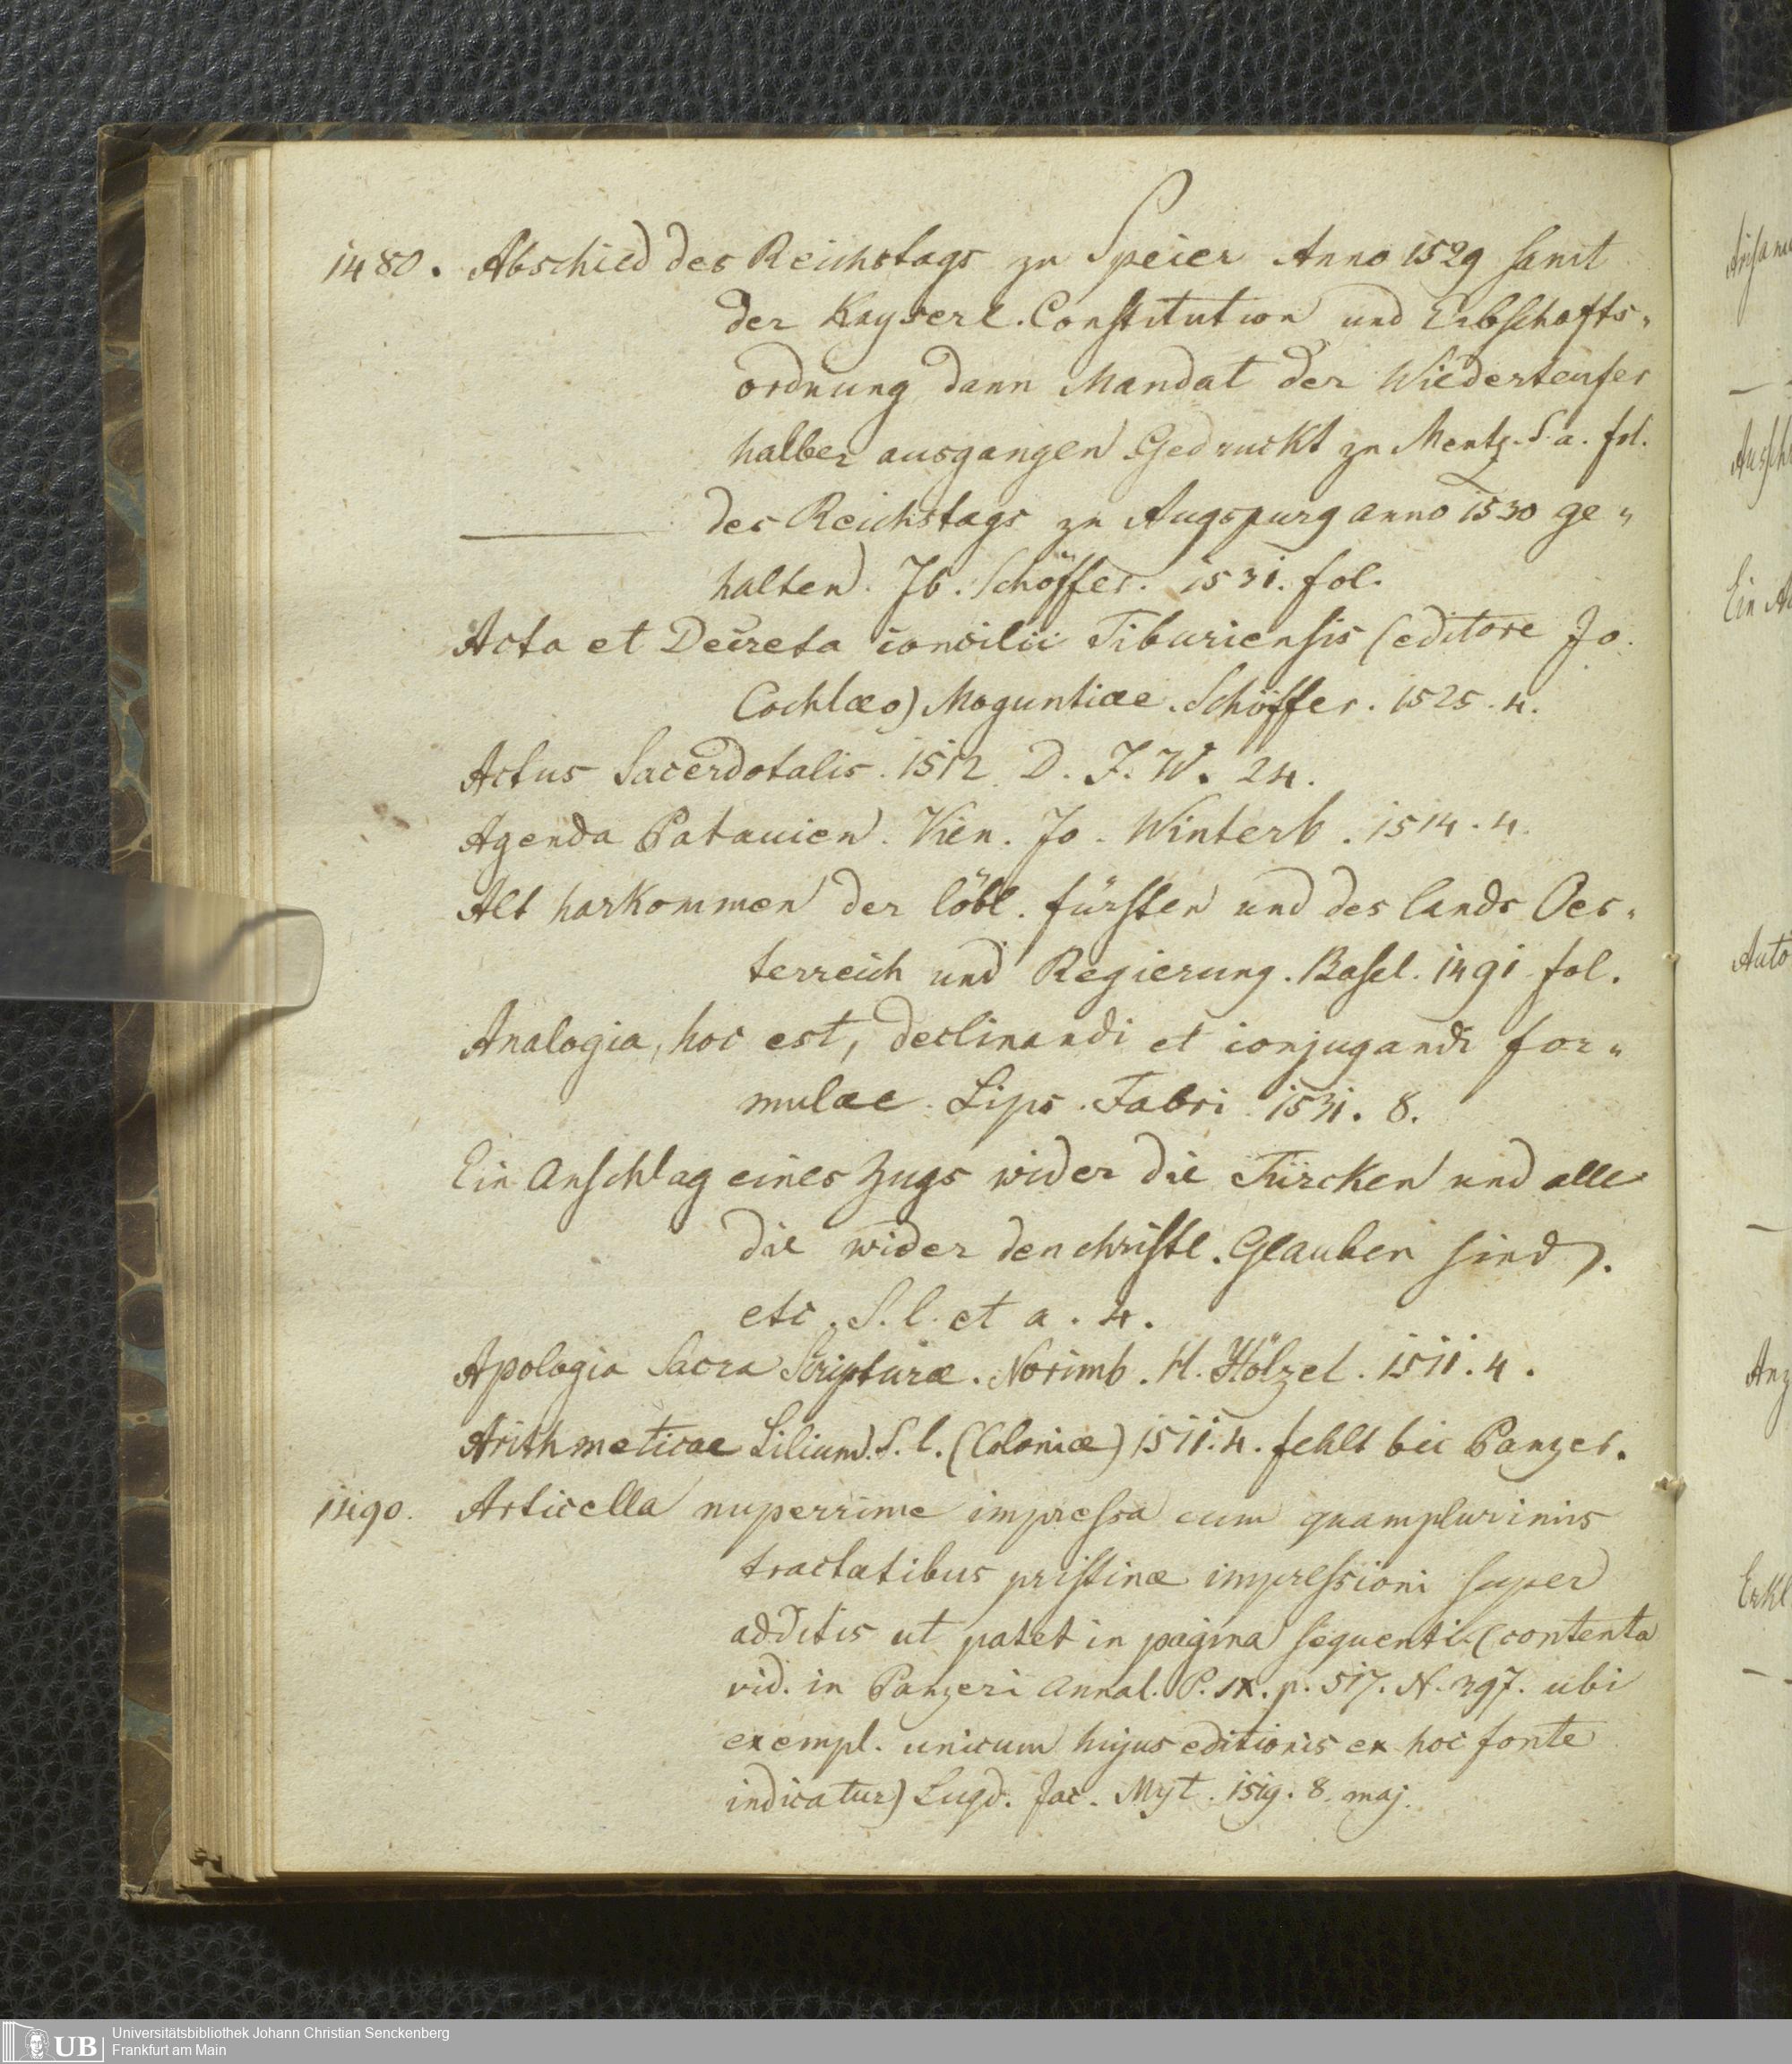 1480. Abschied des Reichstags zu Speier Anno 1529 samt
der Kayserl. Constitution und Erbschafts-
ordnung dann Mandat der Wiedertenfer
halber ausgangen Gedruckt zu Mentz. S. a. fol.
——— des Reichstags zu Augspurg anno 1530 ge-
halten. Jb. Schöffer. 1531. fol.
Acta et Decreta concilii Tiburiensis (editore Jo.
Cochlæo) Moguntiae. Schöffer. 1525. 4.
Actus Sacerdotalis. 1512. D. J. W. 24.
Agenda Patauien. Vien. Jo. Winterb. 1514. 4.
Alt harkommen der löbl. fürsten und des lands Oes-
terreich und Regierung. Basel. 1491 fol.
Analogia, hoc est, declinandi et conjugandi for-
mulae. Lips. Fabri. 1531. 8.
Ein Anschlag eines Zugs wider die Türcken und alle
die wider den christl. Glauben sind).
etc. S. l. et a. 4.
Apologia Sacra Scripturæ. Norimb. H. Hölzel. 1511. 4.
Arithmeticae Lilium. S. l. (Coloniæ) 1511. 4. fehlt bei Panzer.
1490. Articella nuperrime impressa cum quamplurimis
tractatibus pristinæ impressioni super
additis ut patet in pagina sequenti (contenta
vid. in Panzeri Annal. P. IX. p. 517. N. 397. ubi
exempl. unicum hujus editionis ex hoc fonte
indicatur) Lugd. Jac. Myt. 1519. 8. maj.
Ein
UB
Universitätsbibliothek Johann Christian Senckenberg
Frankfurt am Main